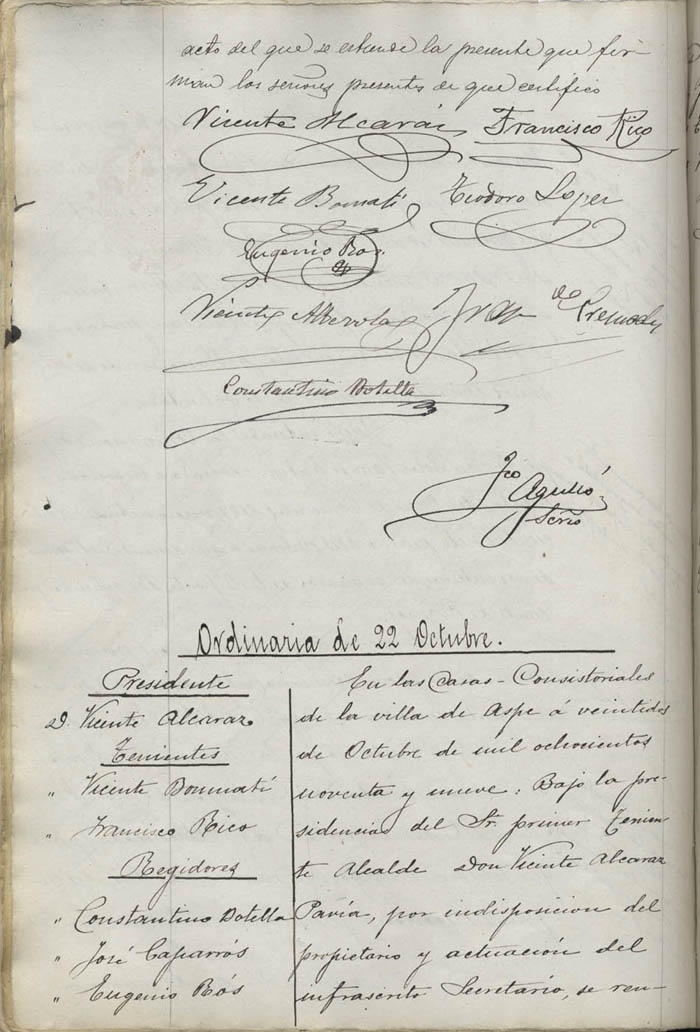 acto del que se estiende la presente que fir-
man los señores presentes de que certifico
Vicente Alcaraz Francisco Rico
Vicente Bonmatí Teodoro Lopez
Eugenio Bos.
Vicente Alberola Fran de
Constantino Botella
Fco Agulló
Serio
Ordinaria de 22 Octubre.
Presidente
D. Vicente Alcaraz
Tenientes
" Vicente Bonmatí
" Francisco Rico
Regidores
" Constantino Botella
" José Caparrós
" Eugenio Bós
En las Casas-Consistoriales
de la villa de Aspe á veintidos
de Octubre de mil ochocientos
noventa y nueve: Bajo la pre-
sidencia del Sr. primer Tenien-
te Alcalde Don Vicente Alcaraz
Pavía, por indisposicion del
propietario y actuación del
infrascrito Secretario, se reu-